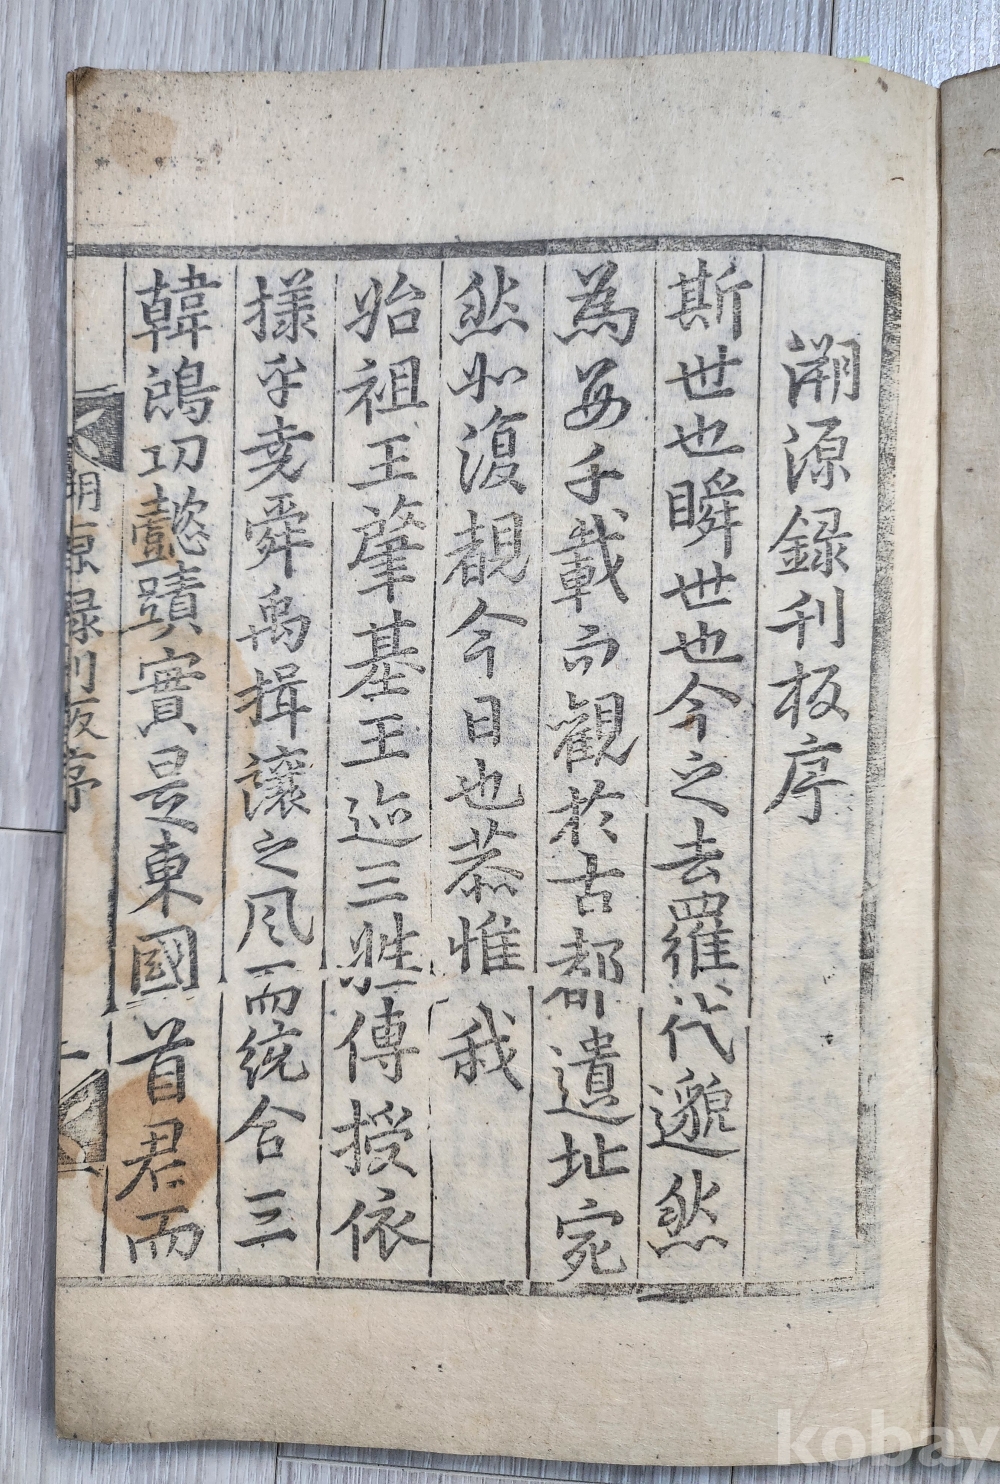 溯源録刊板序
斯世也瞬世也今之去羅代邈然
為千載而觀於古都遺址宛
然如復覩今日也恭惟 我
始祖王肇基王迹三姓傳授依
様乎堯舜禹揖讓之風而統合三
韓鴻功懿蹟實是東國首君而
溯源録刊板序
一
kobay